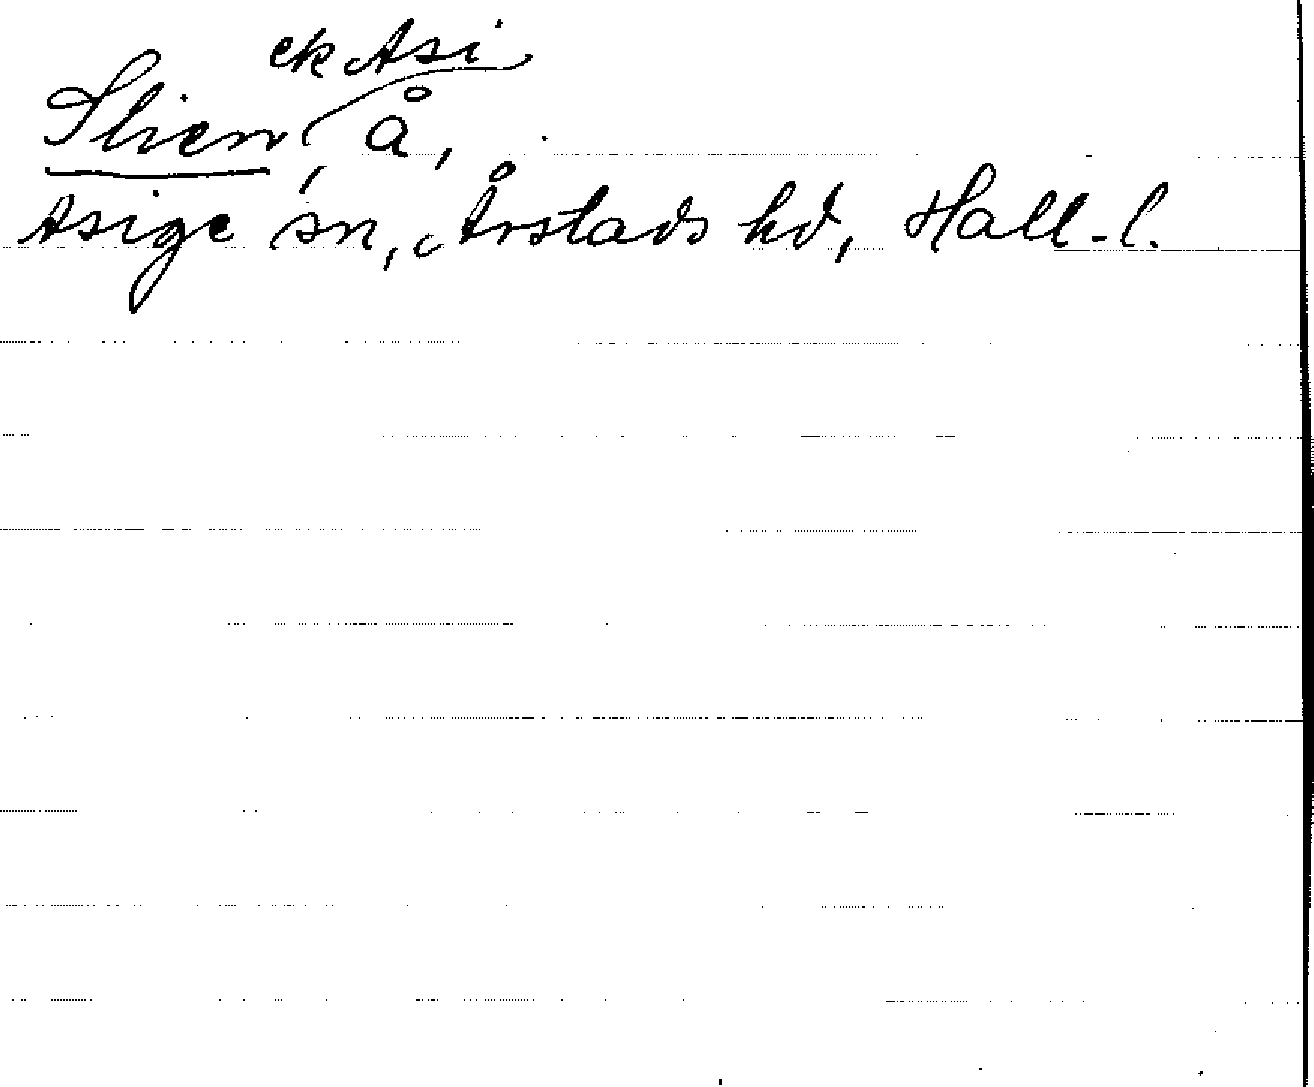 ek Asi
Slien, å,
Asige sn, Årstads hd, Hall. l.